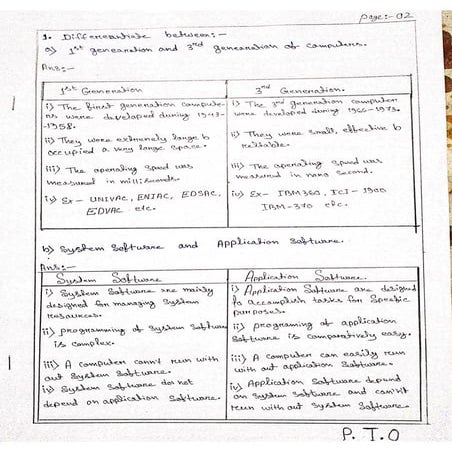 Page:- 02
1. Differentiate between:-
a) 1st generation and 3rd generation of computers.
Ans:-
1st Generation
i) The first generation compute-
rs were developed during 1943-
-1958.
ii) They were extremely large &
occupied a very large space.
iii) The operating speed was
measured in milliseconds.
iv) Ex - UNIVAC, ENIAC, EDSAC,
EDVAC etc.
3rd Generation.
i) The 3rd generation computer
were developed during 1966-1973.
ii) They were small, effective &
reliable.
iii) The operating speed was
measured in nano second.
iv) Ex - IBM 360, ICI - 1900
IBM-370 etc.
b) System Software and Application Software.
Ans:-
System Software
i) System Software are mainly
designed for managing System
resources.
ii) programming of System Software
is complex.
iii) A computer can't run with
out System Software.
iv) System Software do not
depend on application Software.
Application Software.
i) Application Software are designed
to accomplish tasks for Specific
purposes.
ii) programing of application
Software is comparatively easy.
iii) A computer can easily run
with out application Software.
iv) Application Software depend
on System Software and can't
run with out System Software.
P. T. O